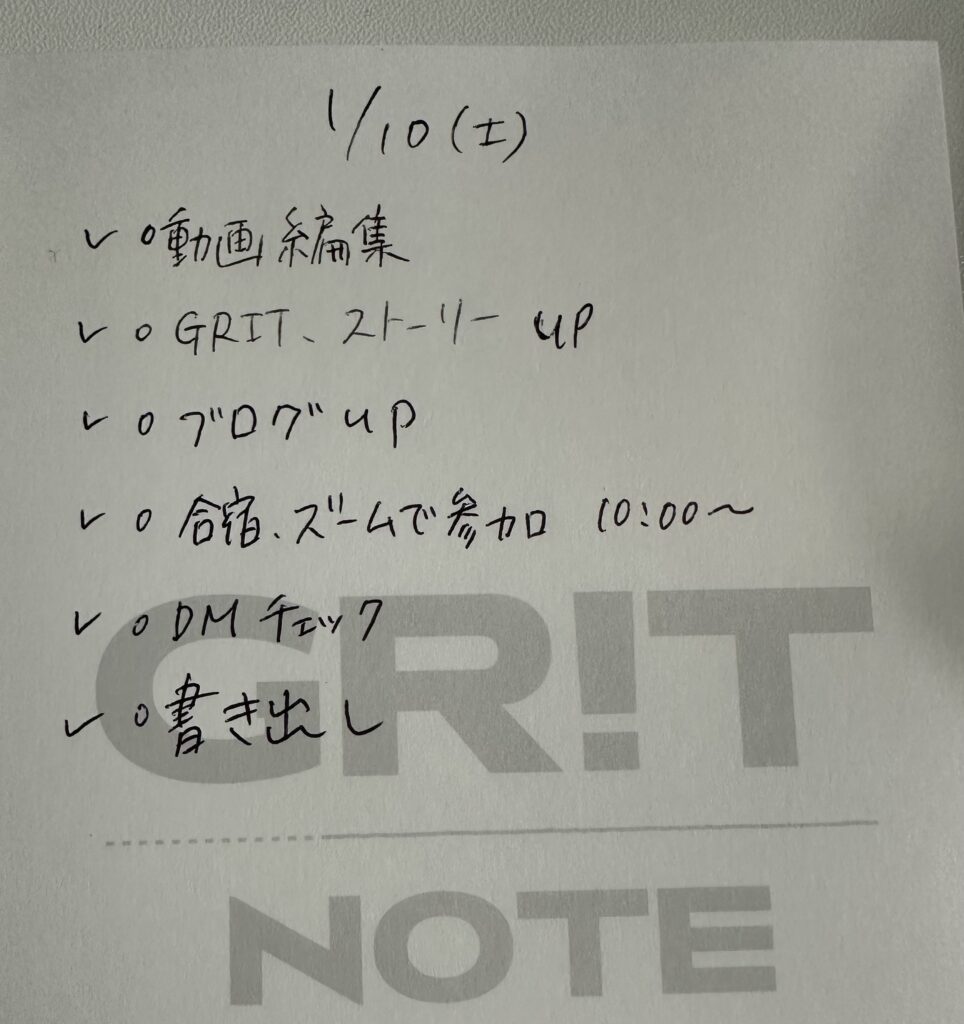 1/10(土)
✓ ○動画編集
✓ ○ GRIT、ストーリー up
✓ ○ ブログup
✓ ○ 合宿、ズームで参加 10:00〜
✓ ○ DMチェック
✓ ○書き出し
GR!T
NOTE